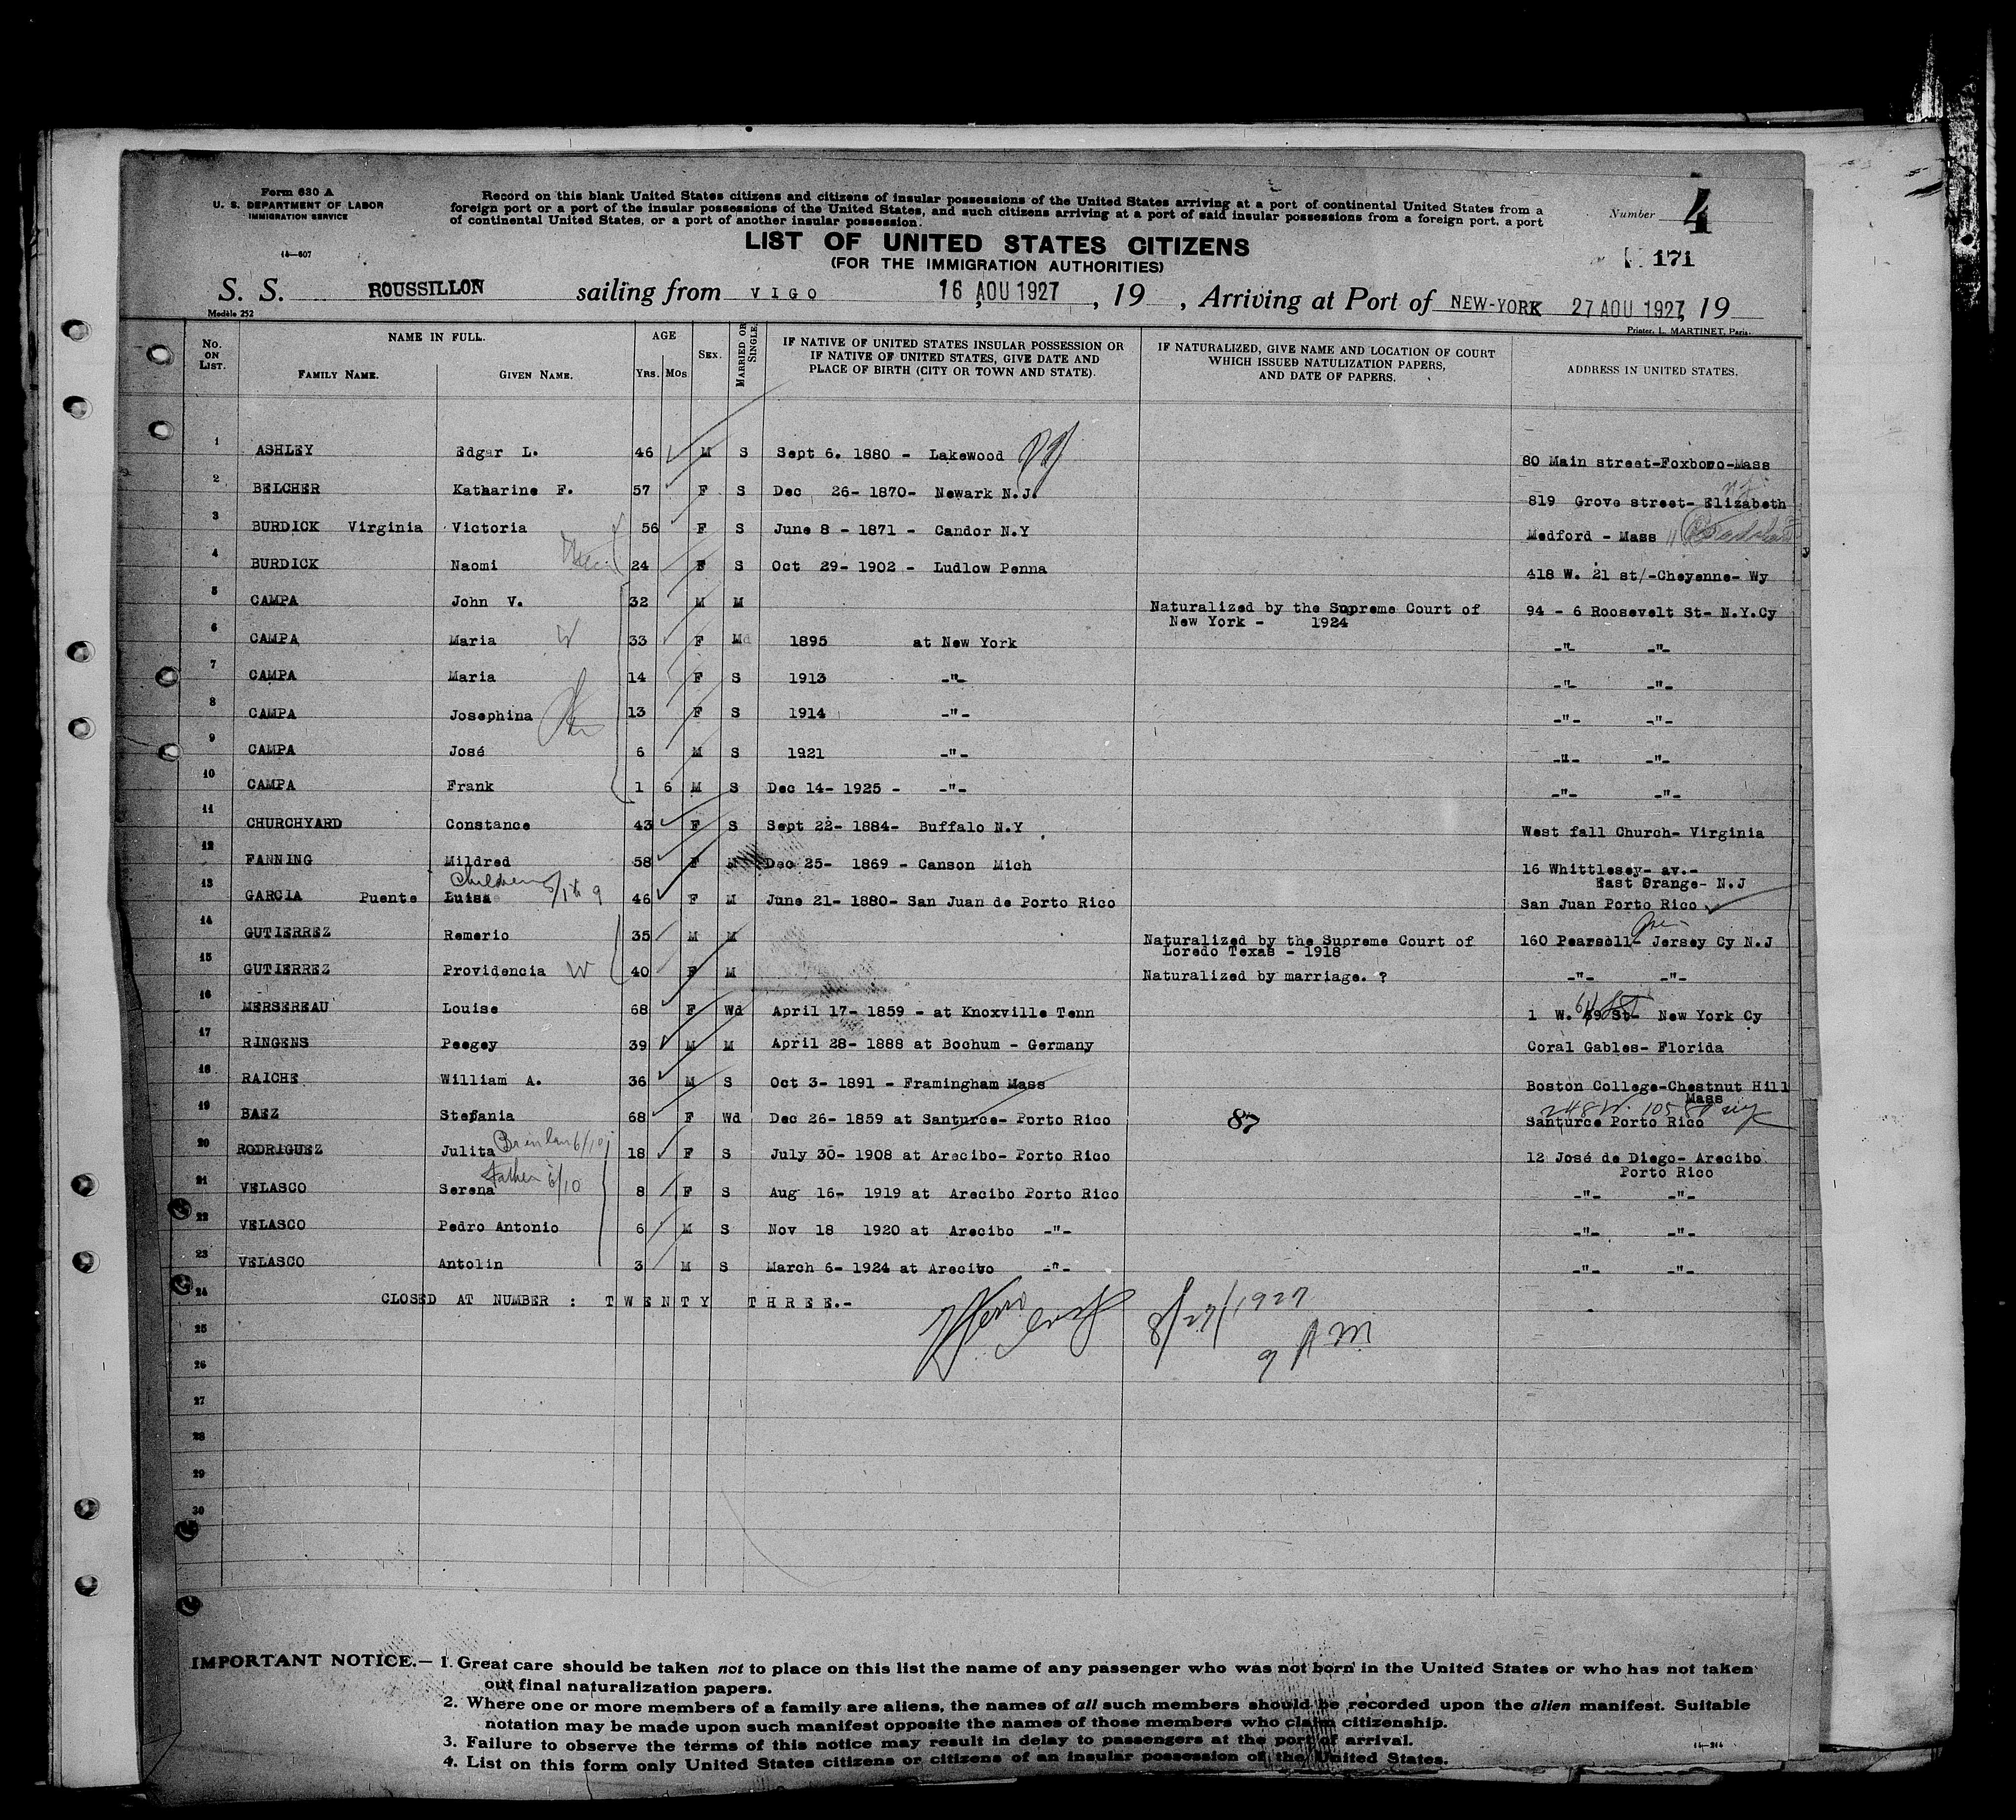 Form 630 A
U. S. DEPARTMENT OF LABOR
IMMIGRATION SERVICE
14—607
Record on this blank United States citizens and citizens of insular possessions of the United States arriving at a port of continental United States from a
foreign port or a port of the insular possessions of the United States, and such citizens arriving at a port of said insular possessions from a foreign port, a port
of continental United States, or a port of another insular possession.
Number 4
LIST OF UNITED STATES CITIZENS
(FOR THE IMMIGRATION AUTHORITIES)
171
S. S. ROUSSILLON sailing from VIGO 16 AOU 1927, 19 , Arriving at Port of NEW-YORK 27 AOU 1927, 19
Modèle 252
Printer, L. MARTINET, Paris.
No. ON LIST.
NAME IN FULL.
FAMILY NAME. GIVEN NAME.
AGE
Yrs. Mos
SEX.
MARRIED OR SINGLE.
IF NATIVE OF UNITED STATES INSULAR POSSESSION OR
IF NATIVE OF UNITED STATES, GIVE DATE AND
PLACE OF BIRTH (CITY OR TOWN AND STATE).
IF NATURALIZED, GIVE NAME AND LOCATION OF COURT
WHICH ISSUED NATULIZATION PAPERS,
AND DATE OF PAPERS.
ADDRESS IN UNITED STATES.
1 ASHLEY Edgar L. 46 M S Sept 6. 1880 - Lakewood 80 Main street-Foxboro-Mass
2 BELCHER Katharine F. 57 F S Dec 26- 1870- Newark N.J. 819 Grove street- Elizabeth NJ
3 BURDICK Virginia Victoria 56 F S June 8 - 1871 - Candor N.Y Medford - Mass
4 BURDICK Naomi 24 F S Oct 29- 1902 - Ludlow Penna 418 W. 21 st/-Cheyenne- Wy
5 CAMPA John V. 32 M M Naturalized by the Supreme Court of 94 - 6 Roosevelt St- N.Y.Cy
New York - 1924
6 CAMPA Maria W 33 F Md 1895 at New York -"- -"-
7 CAMPA Maria 14 F S 1913 -"- -"- -"-
8 CAMPA Josephina 13 F S 1914 -"- -"- -"-
9 CAMPA José 6 M S 1921 -"- -"- -"-
10 CAMPA Frank 1 6 M S Dec 14- 1925 - -"- -"- -"-
11 CHURCHYARD Constance 43 F S Sept 22- 1884- Buffalo N.Y West fall Church- Virginia
12 FANNING Mildred 58 F Dec 25- 1869 - Canson Mich 16 Whittlesey- av.-
East Orange- N.J
Children
13 GARCIA Puente Luisa 46 F M June 21- 1880- San Juan de Porto Rico San Juan Porto Rico
14 GUTIERREZ Remerio 35 M M Naturalized by the Supreme Court of 160 Pearsoll- Jersey Cy N.J
Loredo Texas - 1918
15 GUTIERREZ Providencia W 40 F M Naturalized by marriage. ? -"- -"-
16 MERSEREAU Louise 68 F Wd April 17- 1859 - at Knoxville Tenn 1 W. 49 St- 64 St New York Cy
17 RINGENS Peegey 39 M M April 28- 1888 at Bochum - Germany Coral Gables- Florida
18 RAICHE William A. 36 M S Oct 3- 1891 - Framingham Mass Boston College-Chestnut Hill
Mass
248 W. 105 St NY
19 BAEZ Stefania 68 F Wd Dec 26- 1859 at Santurce- Porto Rico 87 Santurce Porto Rico
20 RODRIGUEZ Julita 18 F S July 30- 1908 at Arecibo- Porto Rico 12 José de Diego- Arecibo
Porto Rico
Father 6/10
21 VELASCO Serena 8 F S Aug 16- 1919 at Arecibo Porto Rico -"- -"-
22 VELASCO Pedro Antonio 6 M S Nov 18 1920 at Arecibo -"- -"- -"-
23 VELASCO Antolin 3 M S March 6- 1924 at Arecibo -"- -"- -"-
24 CLOSED AT NUMBER : TWENTY THREE.-
8/27/1927
9 AM
25
26
27
28
29
30
IMPORTANT NOTICE.— 1. Great care should be taken not to place on this list the name of any passenger who was not born in the United States or who has not taken
out final naturalization papers.
2. Where one or more members of a family are aliens, the names of all such members should be recorded upon the alien manifest. Suitable
notation may be made upon such manifest opposite the names of those members who claim citizenship.
3. Failure to observe the terms of this notice may result in delay to passengers at the port of arrival.
4. List on this form only United States citizens or citizens of an insular possession of the United States.
14—214